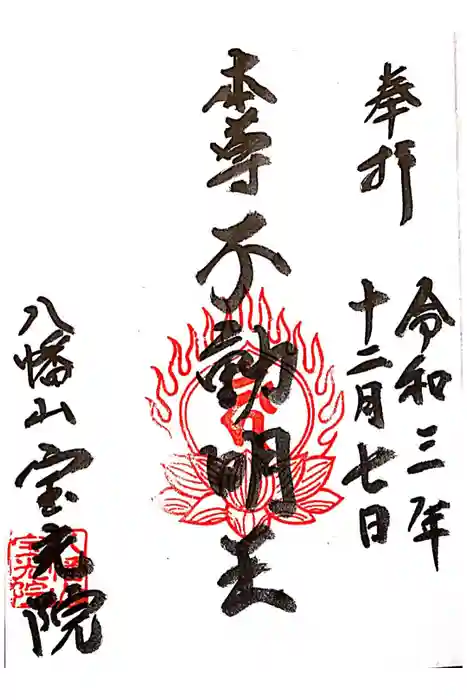 奉拝
令和三年
十二月七日
本尊不動明王
八幡山宝光院